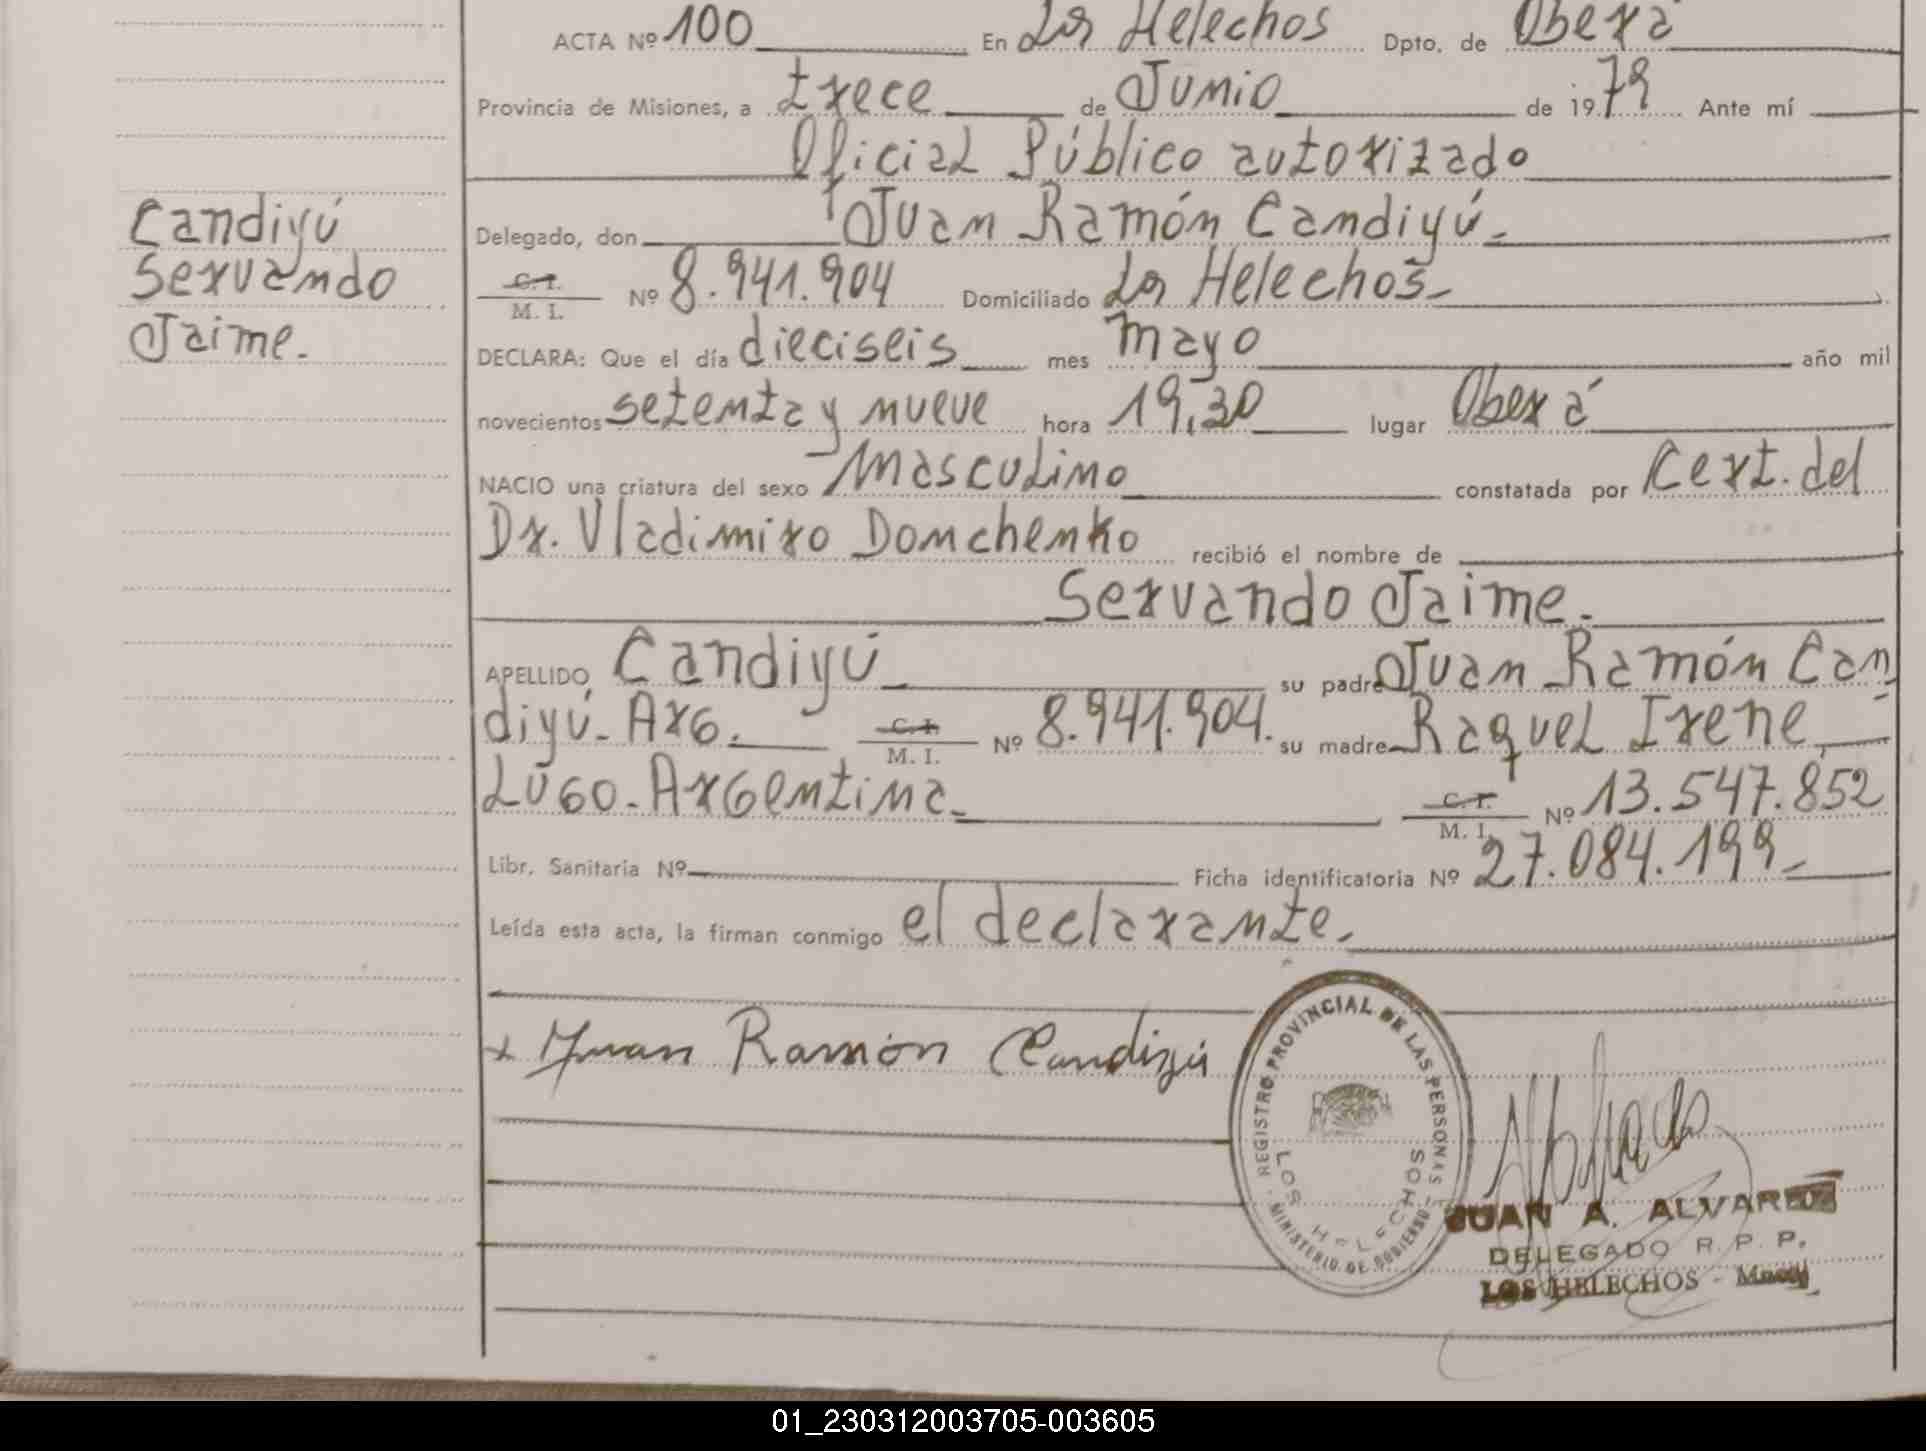 ACTA Nº 100 En Los Helechos Dpto. de Oberá
Provincia de Misiones, a trece de Junio de 1979 Ante mí
Oficial Público autorizado
Delegado, don Juan Ramón Candiyú.
C.I. M. I. Nº 8.941.904 Domiciliado Los Helechos
DECLARA: Que el día dieciseis mes mayo año mil
novecientos setenta y nueve hora 19,30 lugar Oberá
NACIO una criatura del sexo Masculino constatada por Cert. del
Dr. Vladimiro Domchenko recibió el nombre de
Servando Jaime.
APELLIDO Candiyú su padre Juan Ramón Can
diyú. Arg. C.I. M. I. Nº 8.941.904. su madre Raquel Irene
Lugo. Argentina C.I. M. I. Nº 13.547.852
Libr. Sanitaria Nº Ficha identificatoria Nº 27.084.199
Leída esta acta, la firman conmigo el declarante.
Candiyú
Servando
Jaime.
x Juan Ramón Candiyú
REGISTRO PROVINCIAL DE LAS PERSONAS
LOS HELECHOS
MINISTERIO DE GOBIERNO
JUAN A. ALVAREZ
DELEGADO R. P. P.
LOS HELECHOS -
01_230312003705-003605